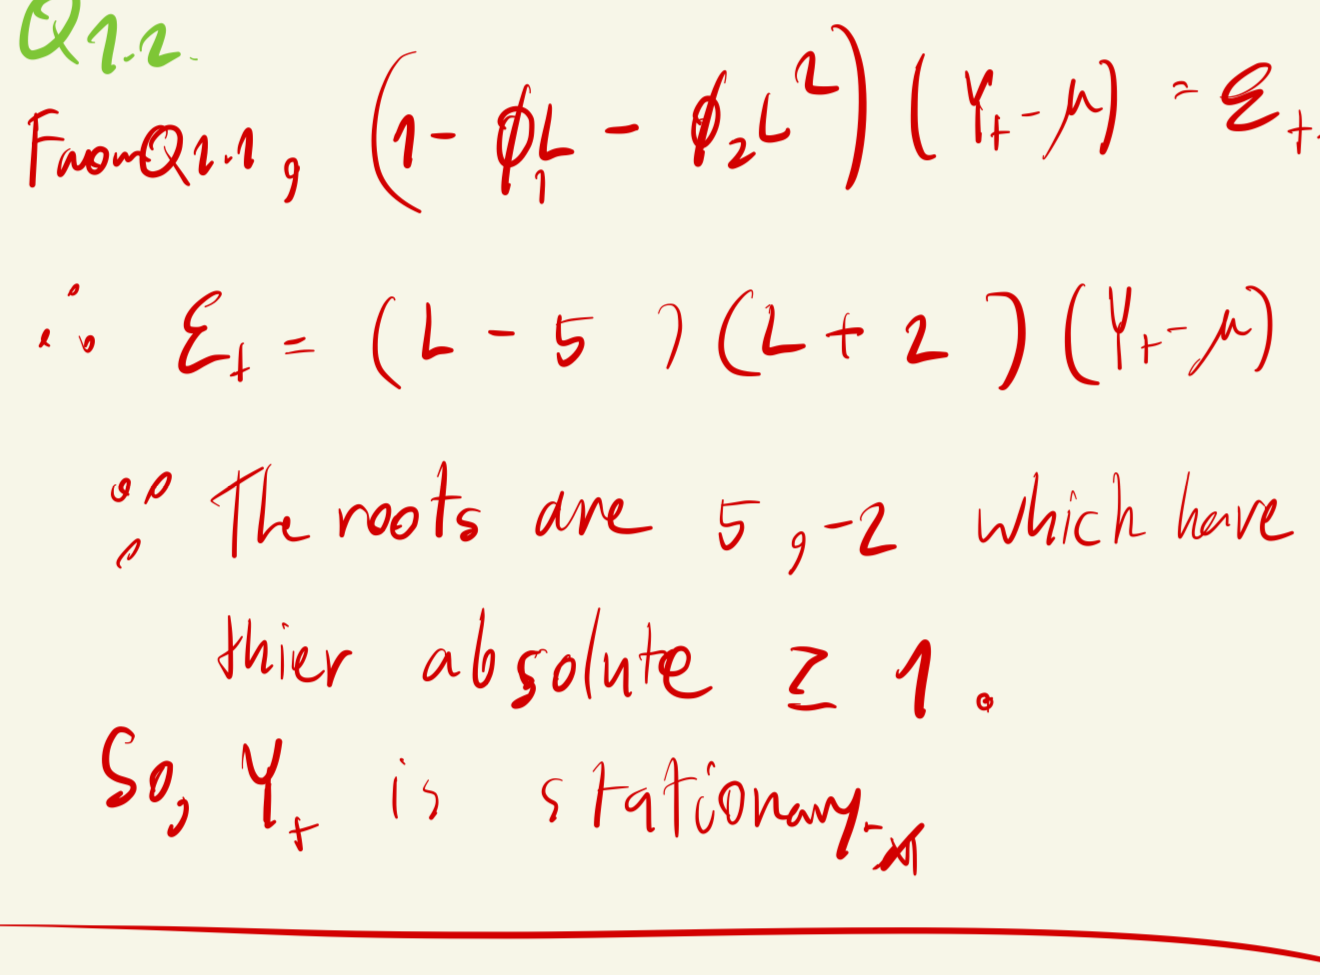 Q1.2.
From Q1.1, (1 - ϕ₁L - ϕ₂L²)(Yₜ - μ) = εₜ.
∴ εₜ = (L - 5)(L + 2)(Yₜ - μ)
∵ The roots are 5, -2 which have
thier absolute ≥ 1.
So, Yₜ is stationary.